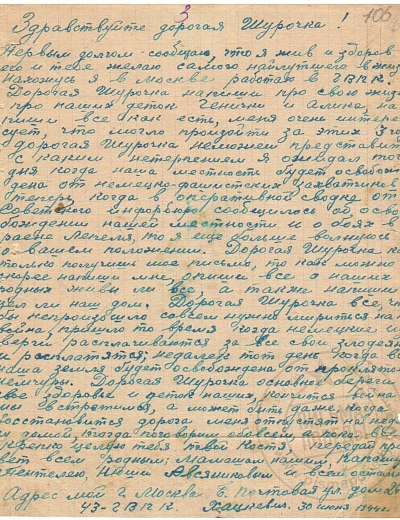 3
106
Здравствуйте дорогая Шурочка!
Первым долгом сообщаю, что я жив и здоров
его и тебе желаю самого найлутшего в жиз
Нахожусь я в Москве работаю в ГВКК.
Дорогая Шурочка напиши про свою жиз
про наших деток Генички и Алика, на
пиши все как есть, меня очень интере
сует, что могло произойти за этих 3 го
дорогая Шурочка неможеш представит
с каким нетерпением я ожидал того
дня когда наша местность будет освобож
дена от немецко-фашистских захватчиков
теперь когда в оперативной сводке от
Советского Информбюро сообщилось об осво
бождении нашей местности и о боях в
районе Лепеля, то я еще больше волнуюсь
о вашем положении. Дорогая Шурочка, ка
только получиш мое письмо, то как можно
скорее напиши мне, опиши все о наших
родных живы ли все, а также напиши
цел ли наш дом. Дорогая Шурочка все, что
бы непроизошло совсем нужно мириться на
война, пришло то время когда немецкие из
верги расплачиваются за все свои злодеян
и расплатятся; недалек тот день когда вс
наша земля будет освобождена от проклятой
немчуры. Дорогая Шурочка основное береги
свое здоровье и деток наших, кончится война
мы встретимся, а может быть даже, когда
восстановится дорога меня отпустят на неде
лю домой, тогда поговорим обовсем, пока все
крепко целую тебя твой Костя, передай при
вет всем родным; Мамашам нашим,
Пантелею, Авсянниковым и всем осталь
Адрес мой г. Москва Б. Почтовая ул. дом 24
43-ГВКК. 30 июня 1944 г.